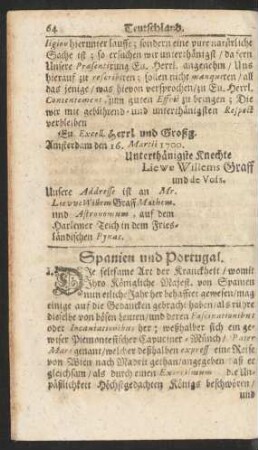 64 Teutschland.
ligien hierunter lauffe; sondern eine pure natürliche
Sache ist; so ersuchen wir unterthänigst / dafern
Unsere Præsentirung Eu. Herrl. angenehm / Uns
hierauf zu rescribiren; sollen nicht manquiren / all
das jenige / was hievon versprochen / zu Eu. Herrl.
Contentement, zum guten Effect zu bringen; Die
wir mit gebührend- und unterthänigsten Respect
verbleiben
Eu. Excell. Herrl. und Großg.
Amsterdam den 16. Martii 1700.
Unterthänigste Knechte
Liewe Willems Graff
und de Vols.
Unsere Addresse ist an Mr.
Lieuwe Willem Graff, Mathem.
und Astronomum, auf dem
Harlemer Teich in dem Fries-
ländischen Pynas.
Spanien und Portugal.
2. Die seltsame Art der Kranckheit / womit
Ihro Königliche Majest. von Spanien
nun etliche Jahr her behafftet gewesen / mag
einige auf die Gedancken gebracht haben / als rühre
dieselbe von bösen Leuten / und deren Fascinationibus
oder Incantationibus her; weßhalber sich ein ge-
wiser Piemontesischer Capuciner-Münch / Pater
Maur genant / welcher deßhalben express eine Reise
von Wien nach Madrit gethan / angegeben / daß er
gleichsam / als durch einen Exorcismum die Un-
päßlichkeit Höchstgedachten Königs beschwören /
und